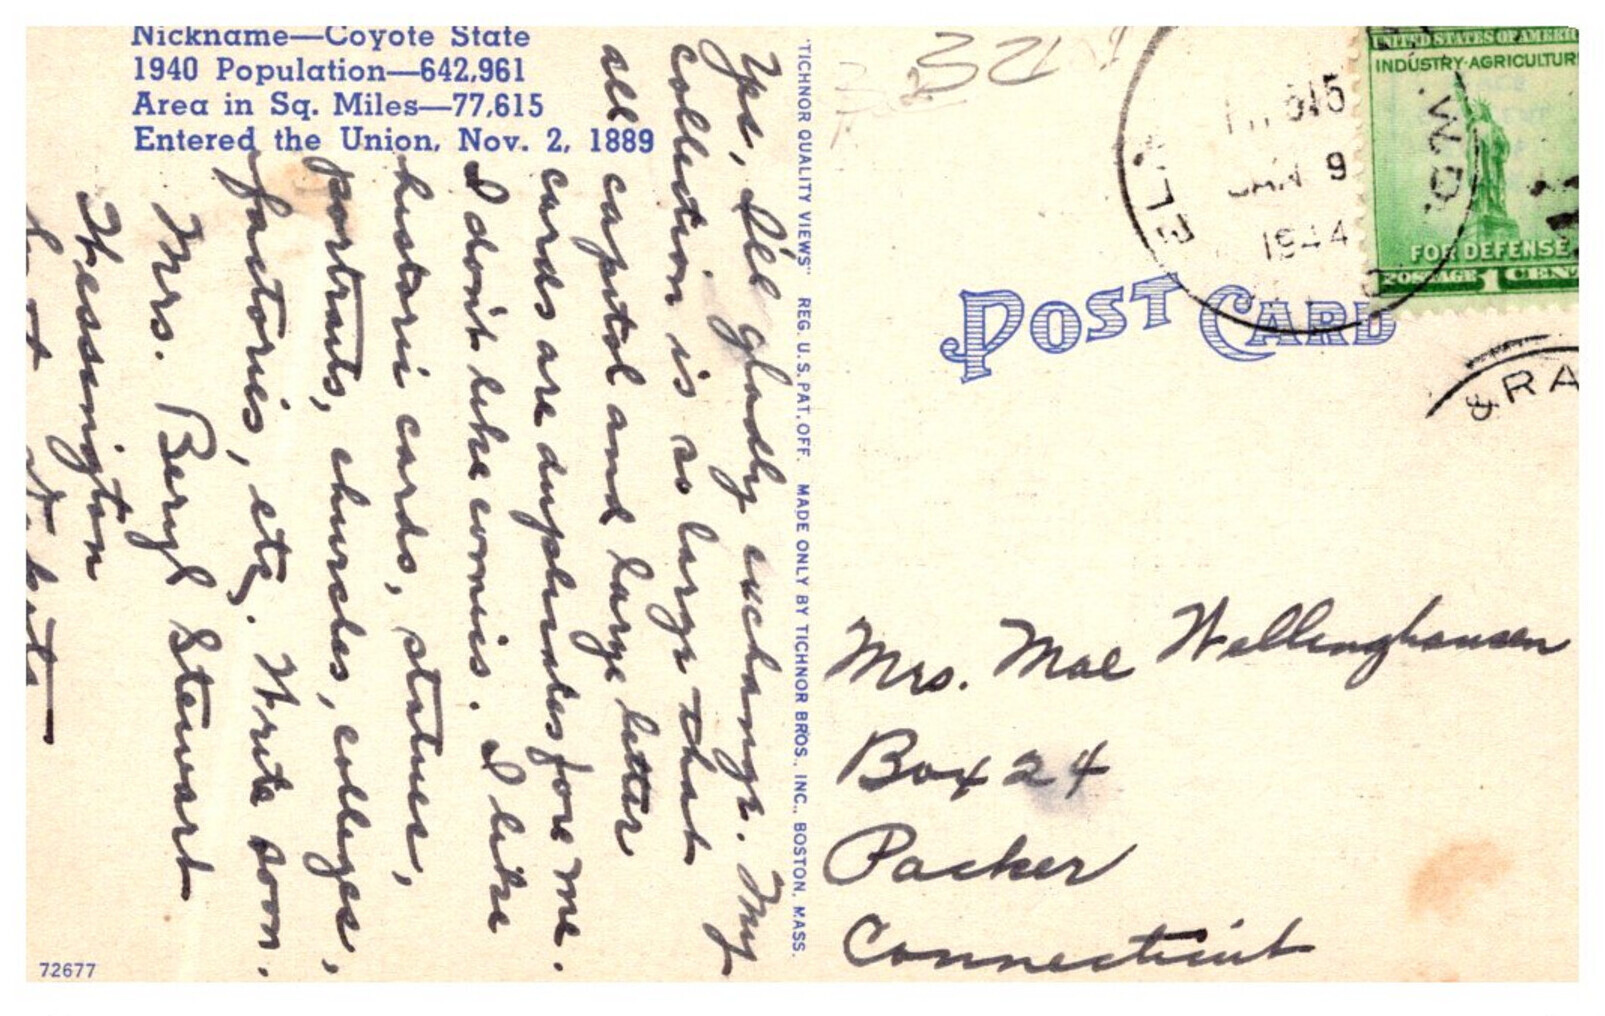 Nickname—Coyote State
1940 Population—642,961
Area in Sq. Miles—77,615
Entered the Union, Nov. 2, 1889
Yes, I'll gladly exchange. My
collection is so large that
all capitol and large letter
cards are duplicates for me.
I don't like comics. I like
historic cards, statues,
portraits, churches, colleges,
factories, etc. Write soon.
Mrs. Beryl Stewart
Hessington
"TICHNOR QUALITY VIEWS" REG. U.S. PAT. OFF. MADE ONLY BY TICHNOR BROS., INC., BOSTON, MASS.
POST CARD
JAN 9
1944
W.D.
& RA
UNITED STATES OF AMERIC
INDUSTRY·AGRICULTUR
FOR DEFENSE
POSTAGE 1 CENT
Mrs. Mae Wellinghausen
Box 24
Packer
Connecticut
72677